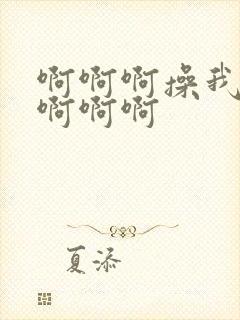 啊啊啊操我
啊啊啊
夏添